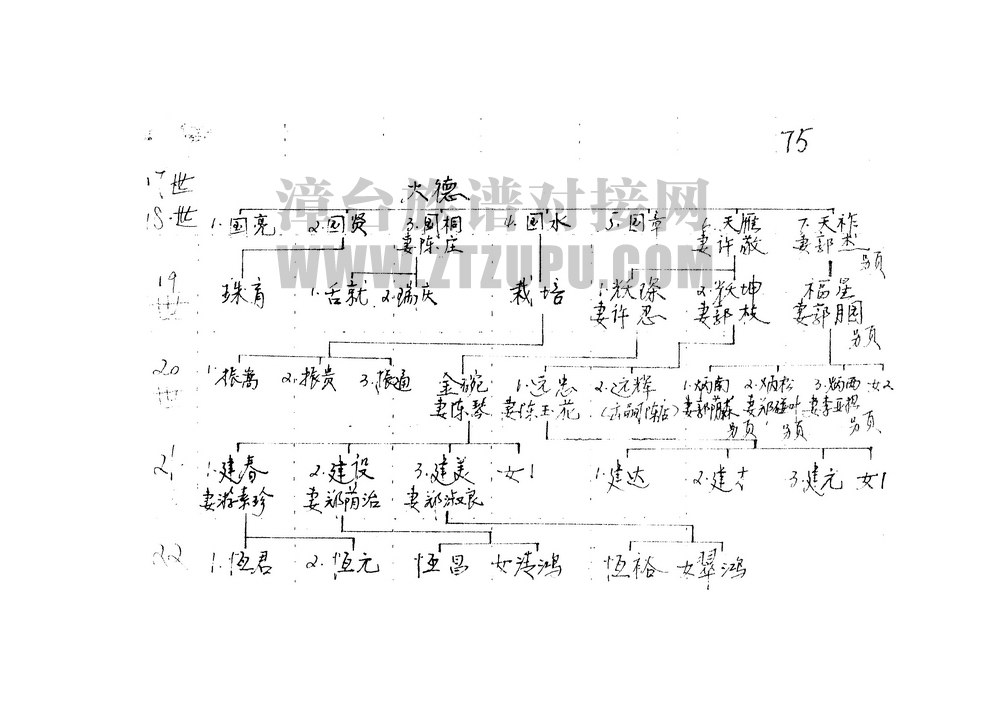 75
17世
漳台族谱对接网
火德
WWW.ZTZUPU.COM
18世 1.国亮 2.国贤 3.国桐 4.国水 5.国章 6.天雁 7.天祚
妻陈庄 妻许敬 妻郭杰
另页
19世 珠育 1.舌就 2.瑞庆 栽培 1.妖琛 2.妖坤 福星
妻许忍 妻郭枝 妻郭月圆
另页
20世 1.振嵩 2.振贵 3.振通 金宛 1.远忠 2.远辉 1.炳南 2.炳松 3.炳西 女2
妻陈琴 妻陈玉花 妻郭荫 妻郑 叶 妻李亚
另页 另页 另页
21 1.建春 2.建设 3.建美 女1 1.建达 2.建 3.建元 女1
妻游素珍 妻郑荫治 妻郑淑良
22 1.恒君 2.恒元 恒昌 女涛鸿 恒裕 女翠鸿